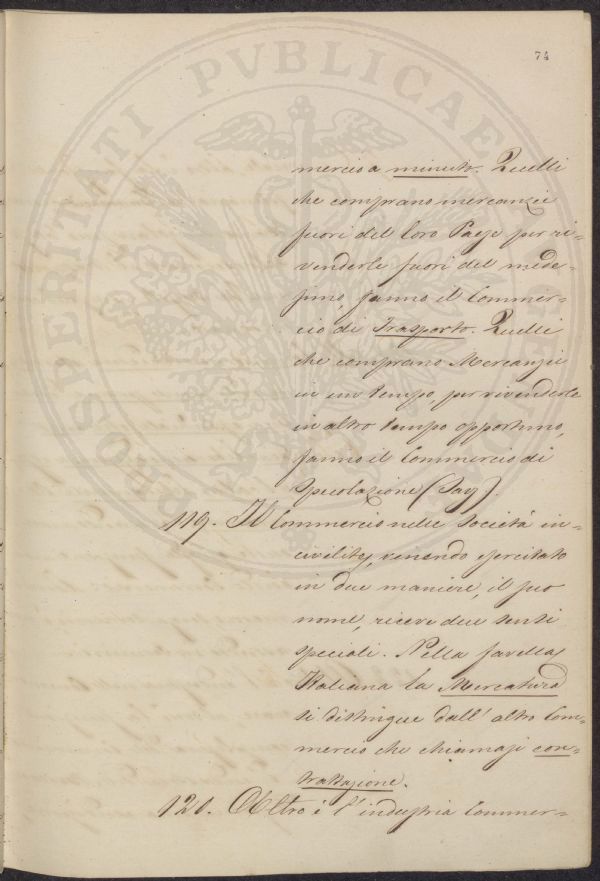 74
PROSPERITATI PVBLICAE
mercio a minuto. Quelli
che comprano mercanzie
fuori del loro Paese per ri-
venderle fuori del mede-
simo, fanno il Commer-
cio di Trasporto. Quelli
che comprano Mercanzie
in un tempo, per rivenderle
in altro tempo opportuno,
fanno il Commercio di
Specolazione (Say).
119. Il Commercio nelle Società in-
civilite, venendo esercitato
in due maniere, il suo
nome, riceve due sensi
speciali. Nella favella
Italiana la Mercatura
si distingue dall' altro Com-
mercio che chiamasi con-
trattazione.
120. Altro è l'industria Commer-